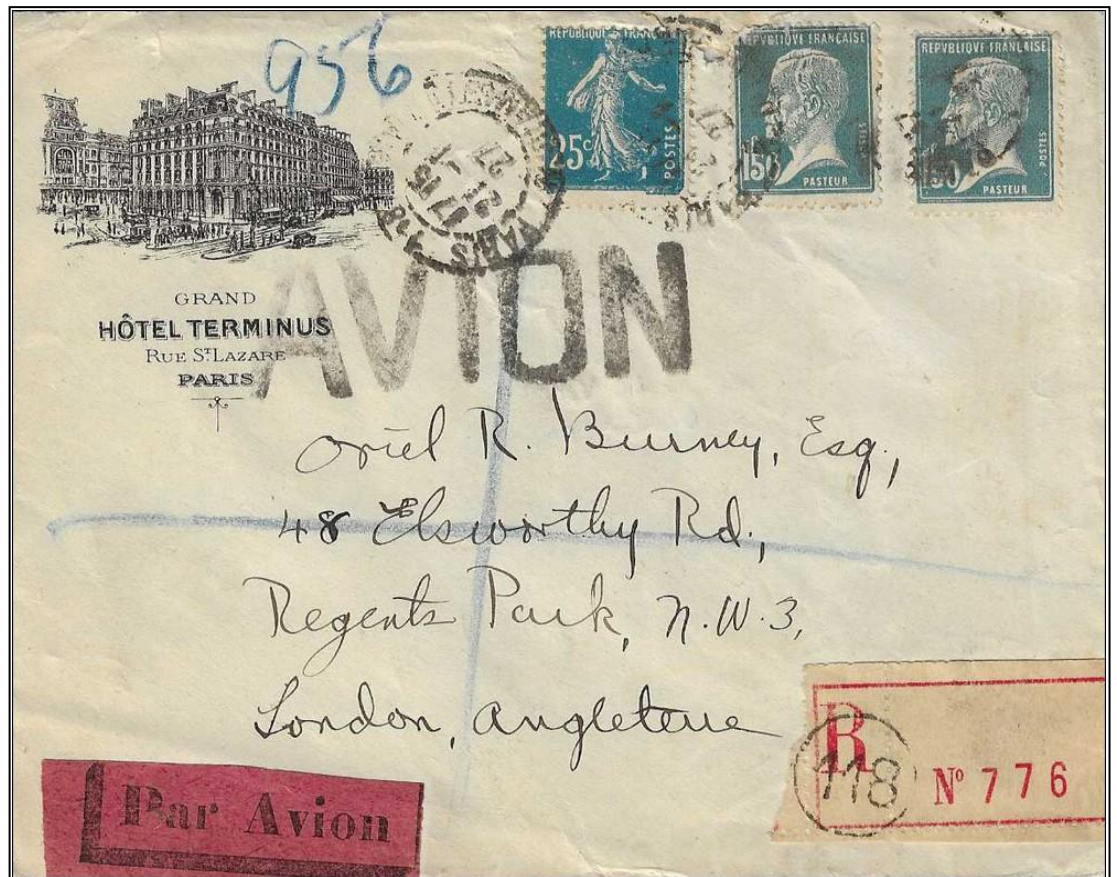 956
REPUBLIQUE FRANÇAISE
25c
POSTES
REPVBLIQVE FRANÇAISE
1F50
POSTES
PASTEUR
REPVBLIQVE FRANÇAISE
50
POSTES
PASTEUR
PARIS
GRAND
HÔTEL TERMINUS
RUE ST. LAZARE
PARIS
AVION
Oriel R. Burney, Esq.,
48 Elsworthy Rd.,
Regents Park, N.W.3,
London, Angleterre
R
118
Nº 776
Par Avion